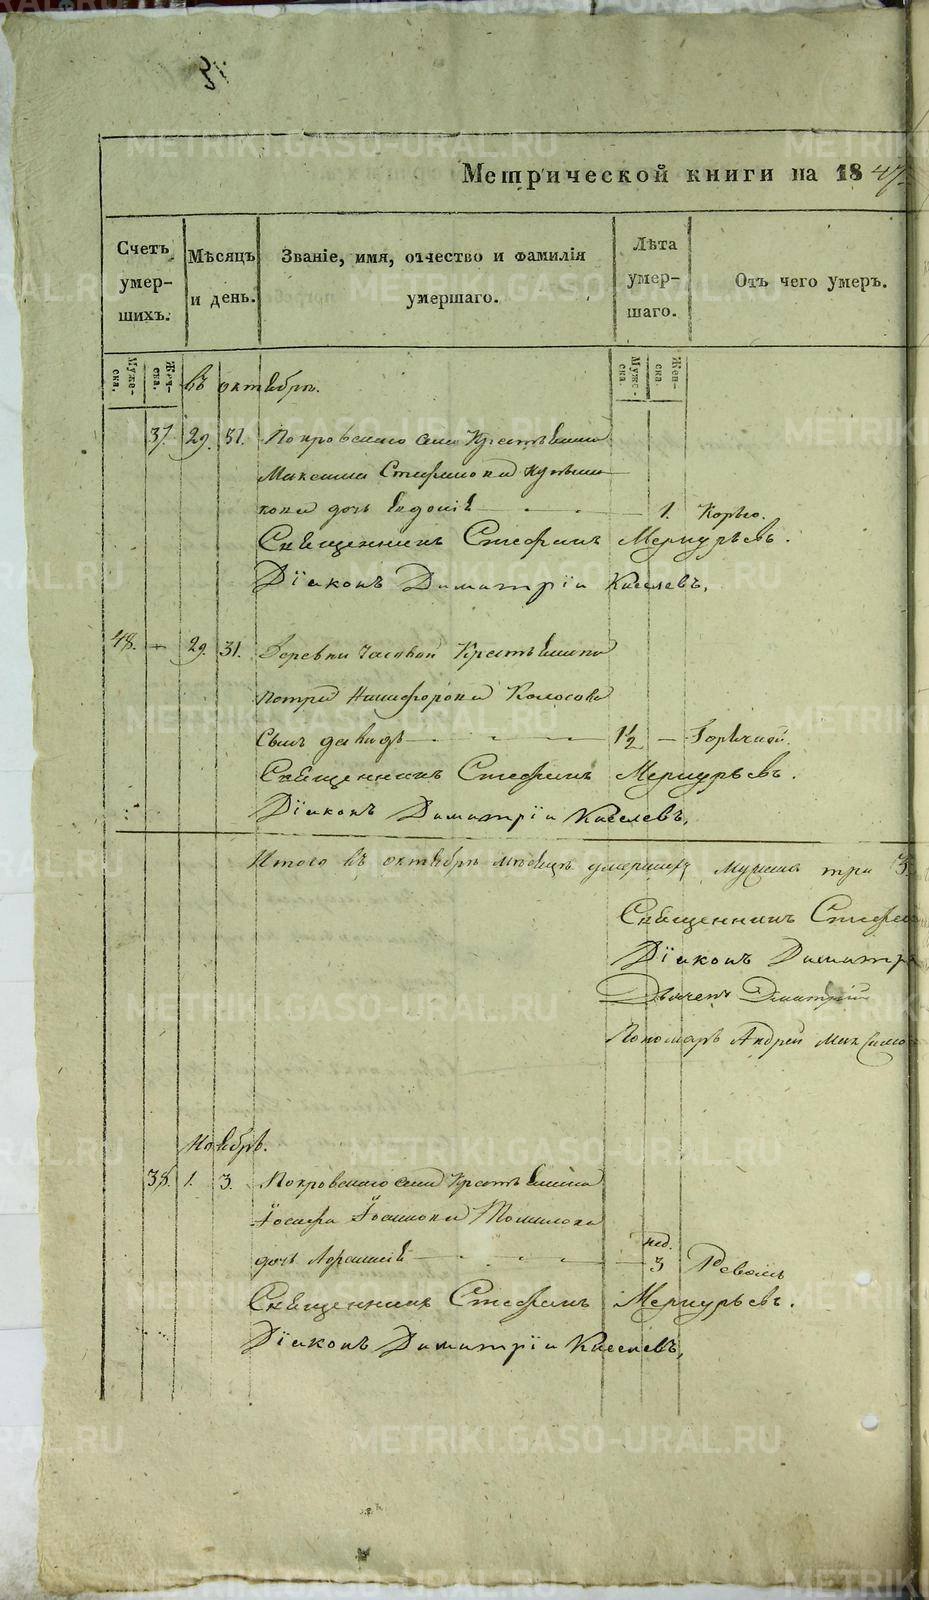 Метрической книги на 1847
Счетъ умер-шихъ.
Мѣсяцъ и день.
Званіе, имя, отчество и фамилія умершаго.
Лѣта умер-шаго.
Отъ чего умеръ.
Муже-ска.
Жен-ска.
Муже-ска
Жен-ска
въ октябрѣ.
37. 29. 31. Покровскаго села Крестьянина
Максима Стефанова
дочь Евдокія 1. Корью.
Священникъ Стефанъ Меркурьевъ.
Діаконъ Димитрій Киселевъ,
48. — 29. 31. Деревни Часовой Крестьянина
Петра Никифорова Колосова
Сынъ Давидъ 1½ — Горячкой.
Священникъ Стефанъ Меркурьевъ.
Діаконъ Димитрій Киселевъ,
Итого въ октябрѣ мѣсяцѣ умершихъ мужеска три 3.
Священникъ Стефа
Діаконъ Димитр
Дьячекъ Дмитрій
Пономарь Андрей Максимо
Ноябрь.
38. 1. 3. Покровскаго села Крестьянина
Іосифа Іоаннова Томилова
дочь нед. 3 Ревомъ
Священникъ Стефанъ Меркурьевъ.
Діаконъ Димитрій Киселевъ,
METRIKI.GASO-URAL.RU